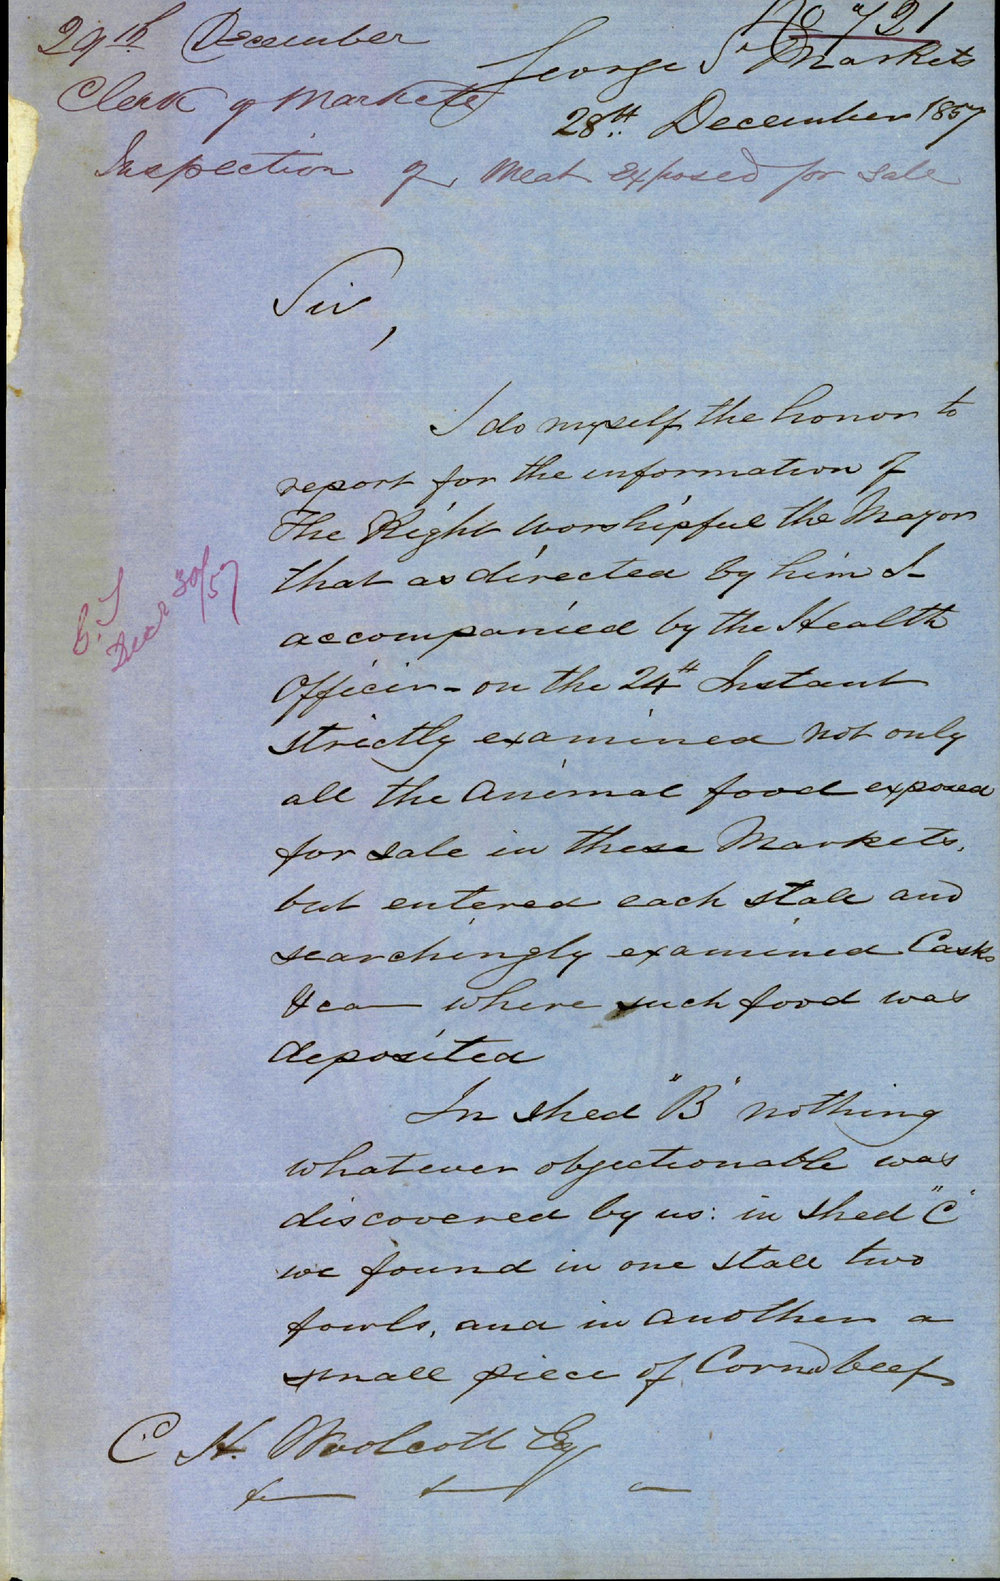 No 721
29th December
George St Markets
Clerk of Markets
28th December 1857
Inspection of Meat exposed for sale
Sir,
I do myself the honor to
report for the information of
The Right Worshipful the Mayor
that as directed by him I
accompanied by the Health
Officer - on the 24th Instant
strictly examined not only
all the Animal food exposed
for sale in these Markets,
but entered each stall and
searchingly examined Casks
&ca where such food was
deposited
In shed "B" nothing
whatever objectionable was
discovered by us: in shed "C"
we found in one stall two
fowls, and in another a
small piece of Corned beef
C H. Woolcott Esq
Decr 30/57